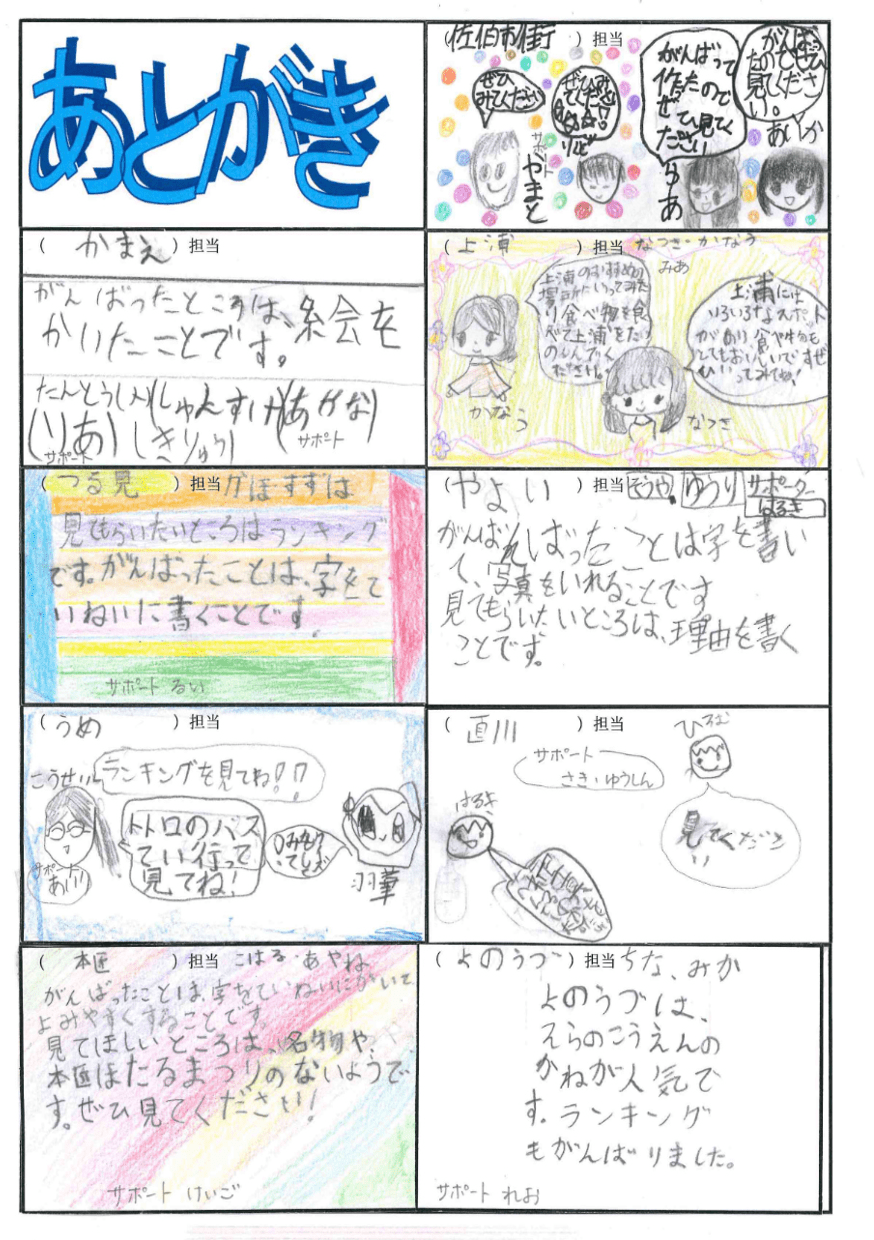 あとがき
(佐伯市街)担当
ぜひ
みてください
サポート
やまと
がんばって
作ったので
ぜひ見てく
ださい
ゆあ
あいか
(かまえ)担当
がんばったところは、絵を
かいたことです。
たんとう
(しゅんすけ)(あかな)
(りあ)(きりゅう)
サポート
サポート
(上浦)担当 なつき・かなう
みあ
上浦のおすすめの
場所にいってみた
り食べ物を食
べて上浦をた
のしんでく
ださい。
かなう
上浦には
いろいろなスポット
があり食べ物も
とてもおいしいです ぜ
ひいってみてね!
なつき
(つる見)担当 かほ すずは
見てもらいたいところはランキング
です。がんばったことは、字をて
いねいに書くことです。
サポート るい
(やよい)担当 そうや ゆうり サポーター
はるき
がんばったことは字を書い
て、写真をいれることです
見てもらいたいところは、理由を書く
ことです。
(うめ)担当
こうせい
ランキングを見てね!!
トトロのバス
てい行って
見てね!
サポート
あい
羽華
(直川)担当
ひろむ
サポート
さき・ゆうしん
はるき
見てくださ
い
(本匠)担当 こはる・あやね
がんばったことは、字をていねいにかいて
よみやすくすることです。
見てほしいところは、名物や、
本匠ほたるまつりのないようで
す。ぜひ見てください!
サポート けいご
(よのうづ)担当 ちな、みか
よのうづは、
そらのこうえんの
かねが人気で
す。ランキング
もがんばりました。
サポート れお